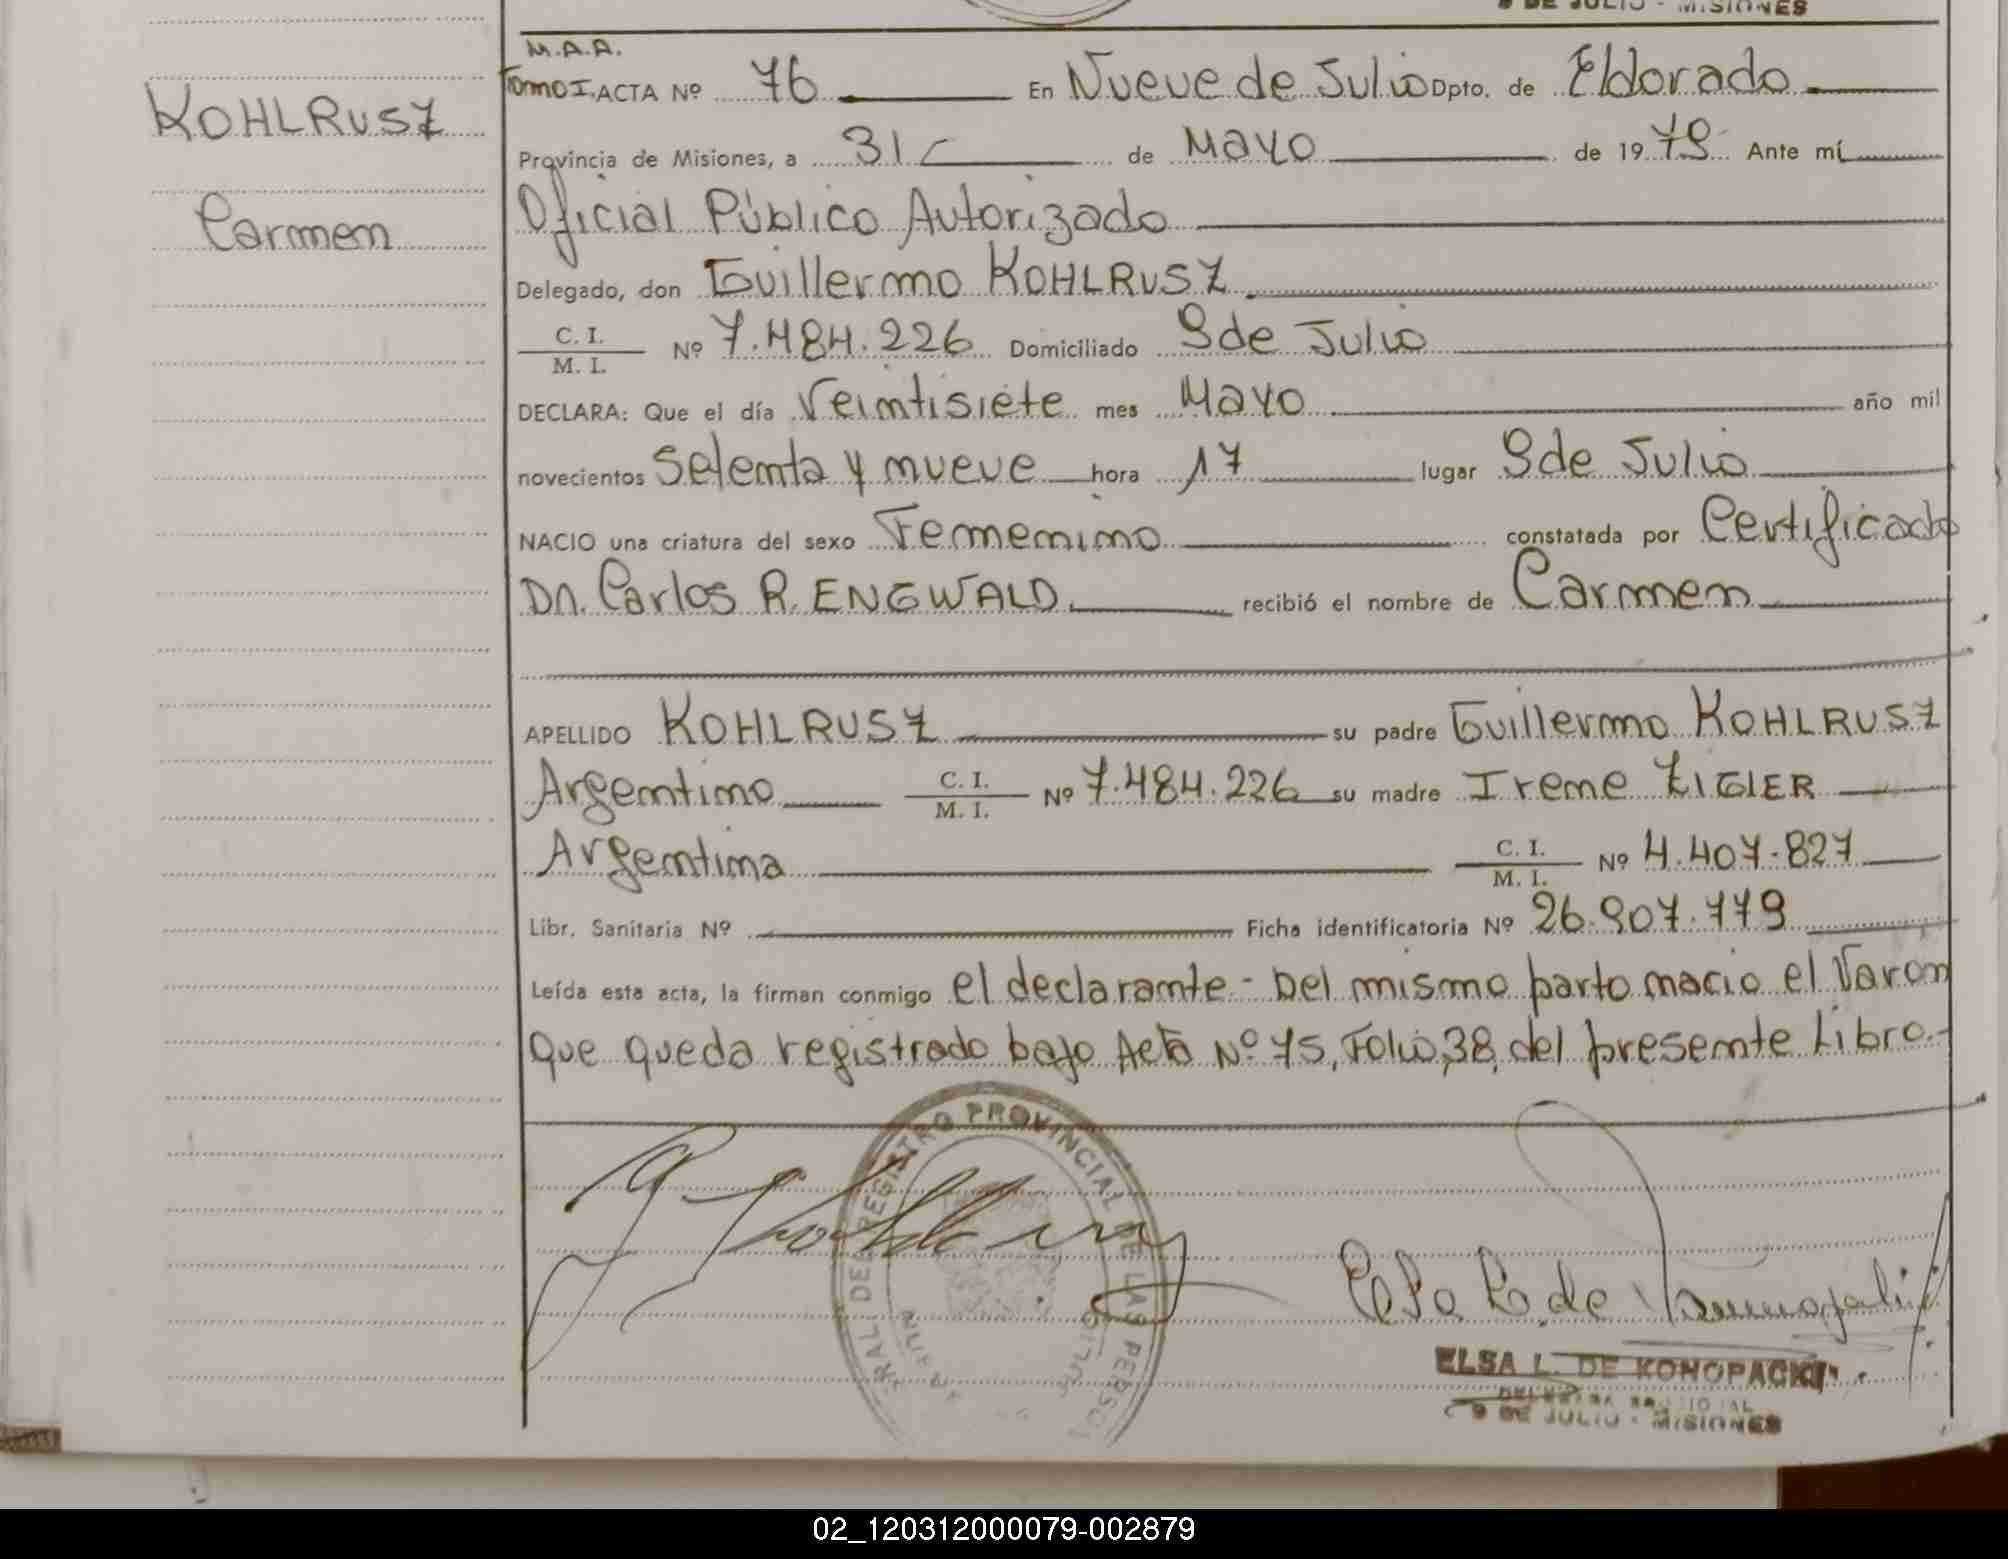 9 DE JULIO - MISIONES
M.A.A.
Tomo I. ACTA Nº 76 En Nueve de Julio Dpto. de Eldorado
KOHLRUSZ
Provincia de Misiones, a 31 de Mayo de 1979 Ante mí
Oficial Público Autorizado
Carmen
Delegado, don Guillermo KOHLRUSZ
C. I. / M. I. Nº 7.484.226 Domiciliado 9 de Julio
DECLARA: Que el día Veintisiete mes Mayo año mil
novecientos Setenta y nueve hora 17 lugar 9 de Julio
NACIO una criatura del sexo Femenino constatada por Certificado
Dn. Carlos R. ENGWALD. recibió el nombre de Carmen
APELLIDO KOHLRUSZ su padre Guillermo KOHLRUSZ
Argentino C. I. / M. I. Nº 7.484.226 su madre Irene ZIGLER
Argentina C. I. / M. I. Nº 4.407.827
Libr. Sanitaria Nº Ficha identificatoria Nº 26.907.779
Leída esta acta, la firman conmigo el declarante - Del mismo parto nacio el Varon
que queda registrado bajo Acta Nº 75, Folio, 38, del presente Libro.-
RAL DEL REGISTRO PROVINCIAL DE LAS PERSO
NUEVE JULIO
Elsa L. de Konopacki
ELSA L. DE KONOPACKI
9 DE JULIO - MISIONES
02_120312000079-002879